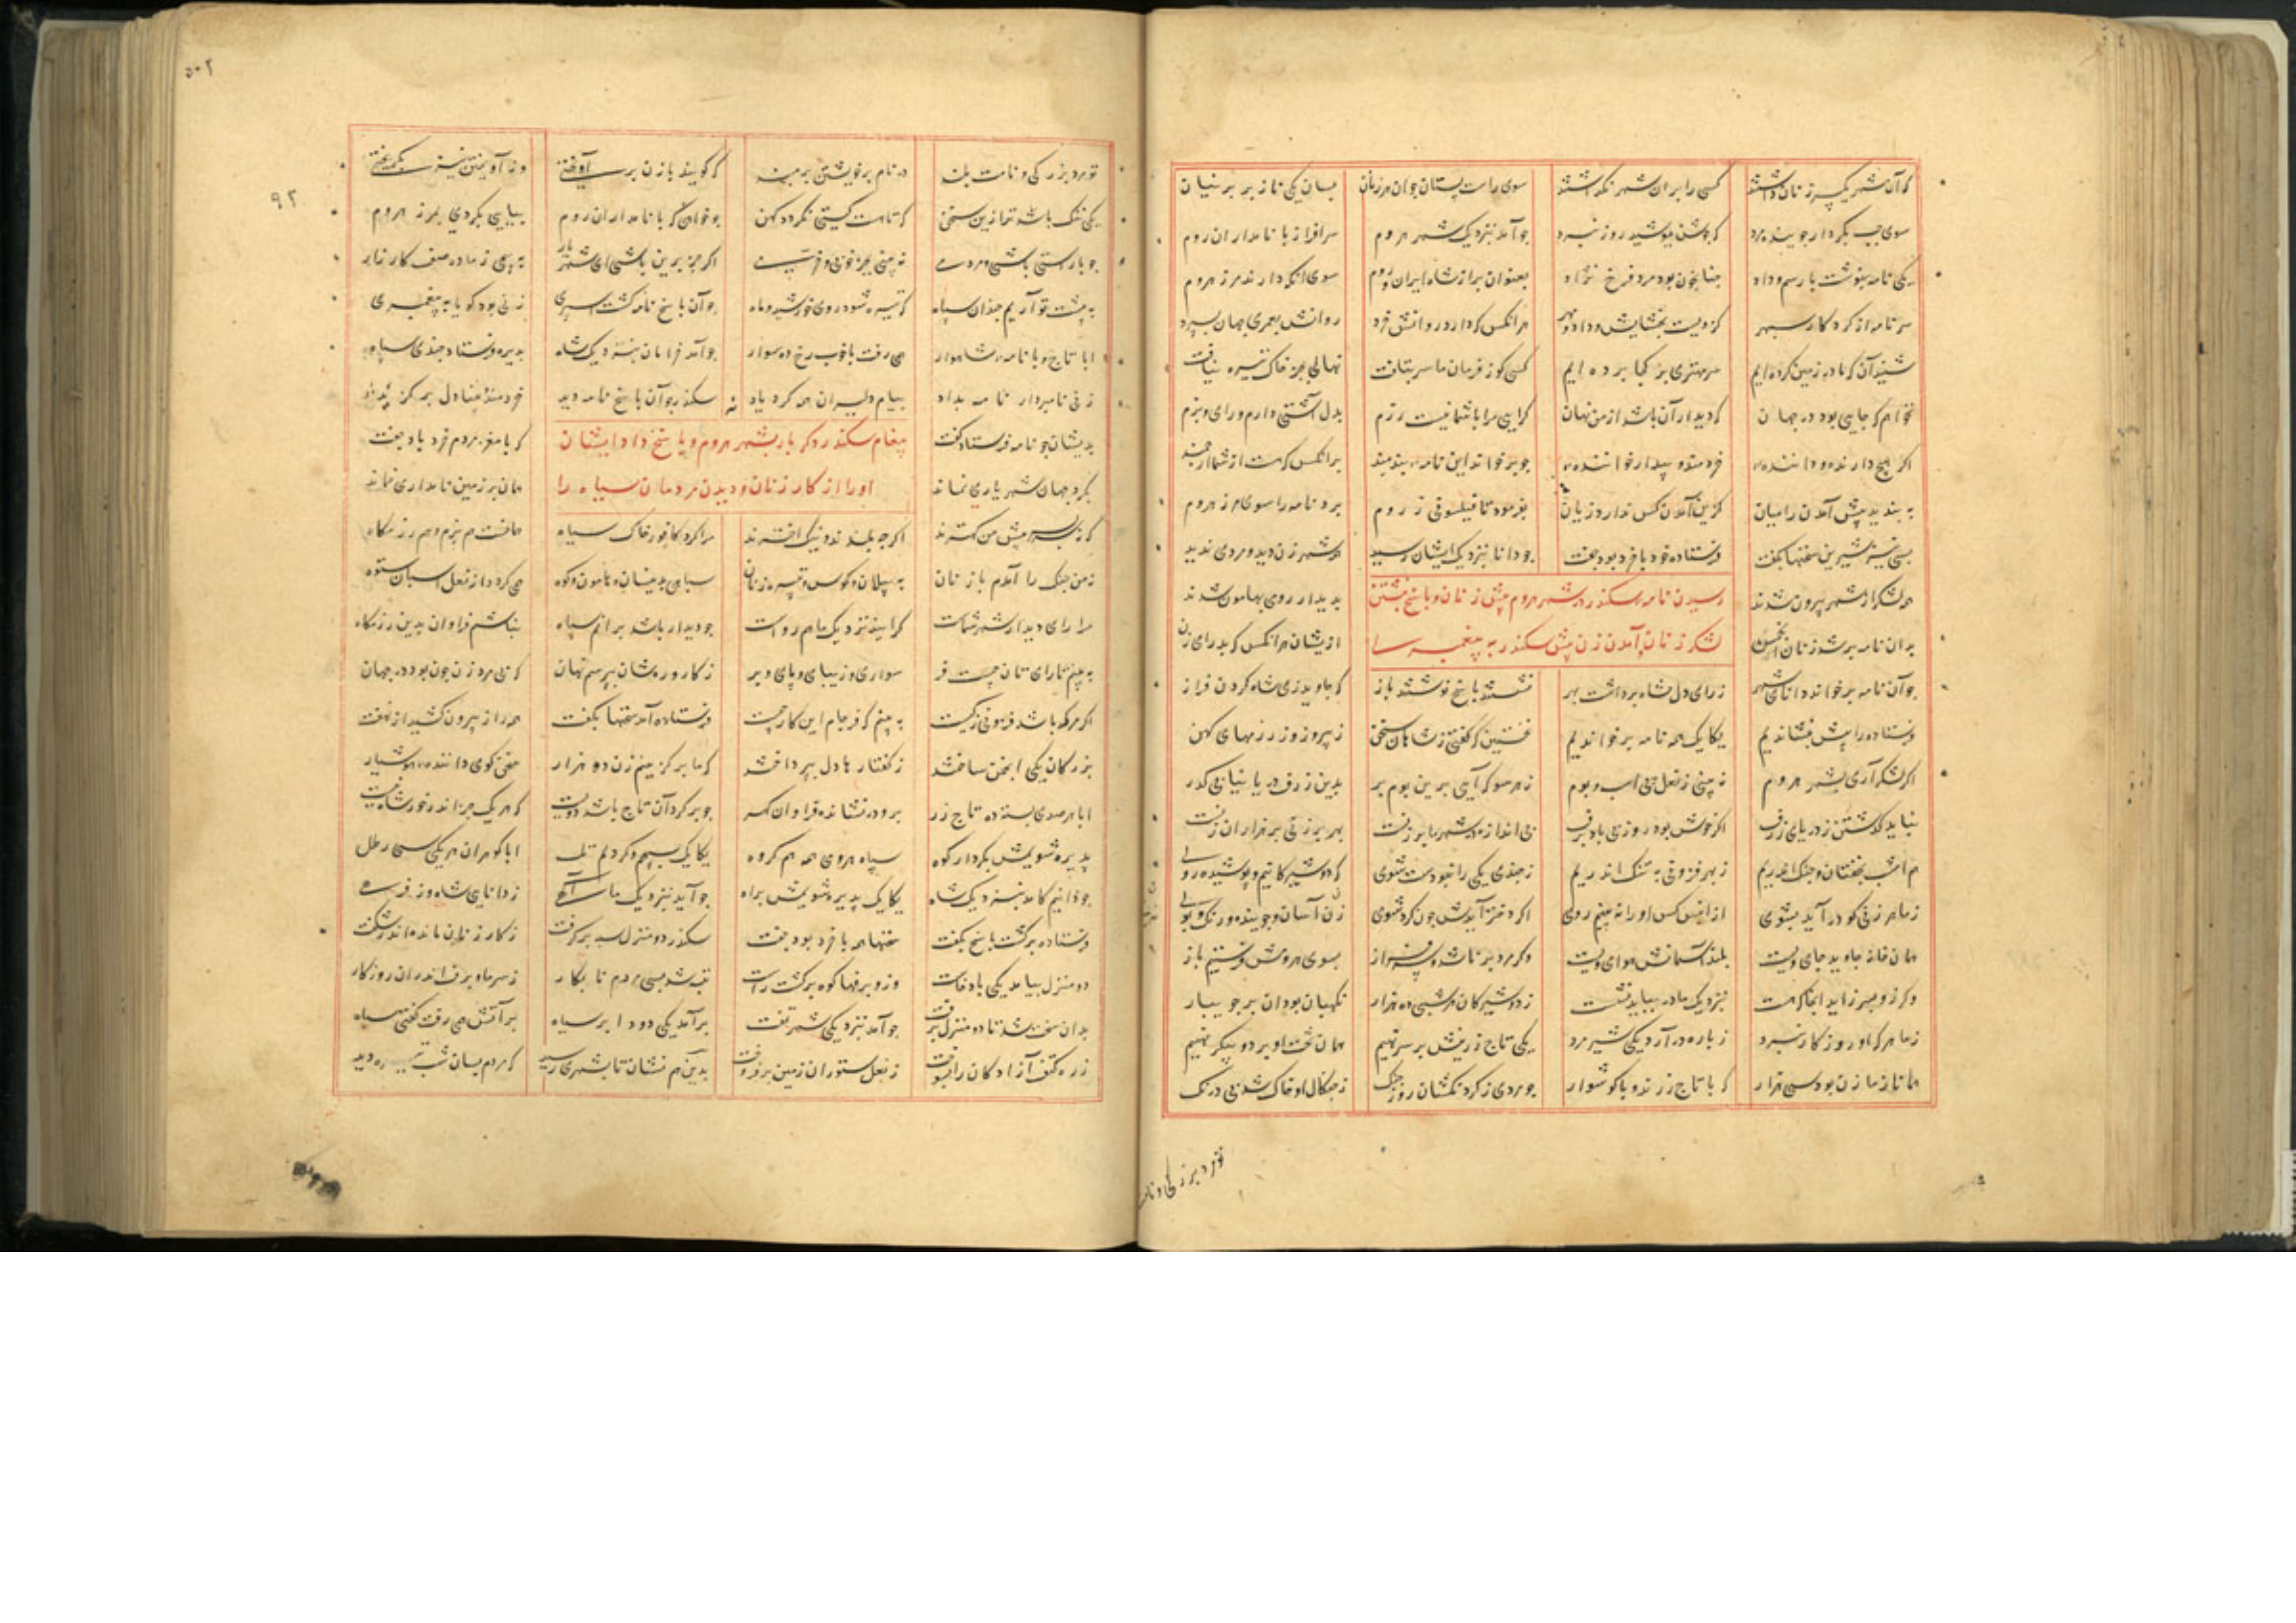 که آن شهر یکسر زنان داشتند کسی را بران شهر نگذاشتند سوی راست پستان جوان هر زنان بسان یکی نار بر پرنیان
سوی چپ بکردار جوینده مرد که جوشن بپوشید روز نبرد جو آمد بنزدیک شهر هروم سرافراز با نامداران روم
یکی نامه بنوشت با رسم و داد جنانجون بود مرد فرخ نژاد بعنوان بر از شاه ایران و روم سوی آنکه دارند مرز هروم
سر نامه از کردکار سپهر کزویست بخشایش و داد و مهر هر انکس که دارد روانش خرد روانش بعمری جهان بسپرد
شنید آن که ما در زمین کرده‌ایم سر مهتری بر کجا برده‌ایم کسی کو ز فرمان ما سر بتافت نهالی بجز خاک تیره نیافت
نخواهم که جایی بود در جهان که دیدار آن باشد از من نهان کر آیی مرا با شما نیست رزم بدل آشتی دارم و رای و بزم
اکر هیچ دارنده و داننده‌ء خردمند و بیدار خواننده‌ء جو بر خواند این نامه‌ء پندمند بر انکس که هست از شما ارجمند
به بندید پیش آمدن را میان کزین آمدن کس ندارد زیان بفرمود تا فیلسوفی ز روم برد نامه را سوی مرز هروم
بسی نیز شیرین سخنها بکفت فرستاده خود با خرد بود جفت جو دانا بنزدیک ایشان رسید همه شهر زن دید و مردی ندید
همه لشکر از شهر بیرون شدند رسیدن نامه سکندر در شهر هروم پیش زنان و پاسخ نبشتن بدیدار رومی بهامون شدند
بدان نامه بر شد زنان انجمن لشکر زنان و آمدن زن پیش سکندر به پیغمبری ازیشان هر انکس که بد رای زن
جو آن نامه بر خواند دانای شهر ز رای دل شاه برداشت بهر نشستند پاسخ نوشتند باز که جاوید زی شاه کردن فراز
فرستاده را پیش بنشاندیم یکایک همه نامه بر خواندیم نخستین که کفتی ز شاهان سخن ز پیروز و رزمهای کهن
اکر لشکر آری بشهر هروم نه بینی ز نعل پی اسب و بوم بدین ژرف دریا نیابی کذر
نباید کذشتن ز دریای ژرف اکر خوش بود روز بی باد برف بی اندازه در شهر ما برزنست بهر برزنی بر هزاران زنست
ز بهر فزونی به تنک اندریم ز جندی یکی را نبودست شوی که دوشیزکانیم و پوشیده روی
ز ما هر زنی کو در آید بشوی از انپس کس او را نه بینیم روی اکر دختر آیدش جون کرد شوی زن آسان و جوینده و رنک و بوی
همان خانه جاوید جای ویست بلند آسمانش هوای ویست وکر مرد بر باشد و سرفراز بسوی هرومش فرستیم باز
وکر زو پسر زاید آنجا که هست نزدیک مادر بیاید نشست ز دوشیزکان هر شبی ده هزار نکهبان بود آن بر جویبار
ز ما هر که او روز کار نبرد ز باره در آرد یکی شیر مرد یکی تاج زرینش بر سر نهیم همان تخت او بر دو پیکر نهیم
همانا ز ما زن بود سی هزار که با تاج زرند و با کوشوار جو مردی ز کردنکشان روز جنک ز جنکال او خاک شد بی درنک
تو مرد بزرکی و نامت
۵۰۲
۹۲
تو مرد بزرکی و نامت بلند در نام بر خویشتن بر مبند که کویند با زن بر آویختی وز آویختن نیز بکریختی
یکی ننک باشد ترا زین سخن که تا هست کیتی نکردد کهن جو خواهی که با نامداران روم بیایی بکردی بمرز هروم
جو با راستی باشی و مردمی نه بینی بجز خوبی و خرمی اکر جز برین باشی ای شهریار به بینی ز ما در صف کار زار
به پیشت تو آریم جندان سپاه که تیره شود روی خورشید و ماه جو آن پاسخ نامه کشت اسپری زنی بود کویا به پیغمبری
ابا تاج و با نامه شاهوار همی رفت با خوب رخ ده سوار جو آمد خرامان بنزدیک شاه پذیره فرستاد جندی سپاه
زن نامبردار نامه بداد پیام دلیران همه کرد یاد سکندر جو آن پاسخ نامه دید خردمند و بینا دل بر کزید
بدیشان جو نامه فرستاد کفت پیغام سکندر دکر بار بشهر هروم و پاسخ دادن ایشان که با مغز مردم خرد باد جفت
بکرد جهان شهریاری نماند او را از کار زنان و دیدن مردمان سیاه را همان بر زمین نامداری نماند
که نه سربسر پیش من کهترند اکر جه بلند ند و نیک اخترند مرا کرد کافور خاک سیاه همانست هم بزم و هم رزمکاه
نه من جنک را آمدم با زنان به پیلان و کوس و تبیره زنان سپاهی بدینسان و هامون و کوه همی کردد از نعل اسبان ستوه
مرا رای دیدار شهر شماست کر ایید نزدیک ما هم رواست جو دیدار باشد برانم سپاه نباشم فراوان بدین رزمکاه
به بینم تا رای تان جیست فر سواری و زیبای و پای و پر ز کار و رهشان بپرسم نهان که بی مرد زن جون بود در جهان
اکر مرک باشد فزونی ز کیست به بینم که فرجام این کار جیست فرستاده آمد سخنها بکفت همه راز بیرون کشید از نهفت
بزرکان یکی انجمن ساختند ز کفتار ها دل بپرداختند که ما بر کزینیم زن دو هزار سخن کوی و داننده و هوشیار
ابا هر صدی بسته ده تاج زر برو در نشانده فراوان کهر جو بر کرد آن تاج باشد دویست که هر یک جز اندر خور شاه نیست
پذیره شویمش بکردار کوه سپاه هروی همه هم کروه یکایک بسیم و کردیم تل ابا کوهران هر یکی سی رطل
جو دانیم کامد بنزدیک شاه یکایک پذیره شویمش براه جو آید بنزدیک ما ز دانایی شاه وز فرهی
فرستاده برکشت پاسخ بکفت سخنها همه با خرد بود جفت سکندر دو منزل سپه بر کرفت ز کار زنان مانده اندر شکفت
دو منزل بیامد یکی باد خاست وزو برفها کوه بر کشت راست تبه شد بسی مردم نا بکار ز سرما و برف اندران روزکار
بدان سخت شد تا دو منزل برفت جو آمد نزدیکی شهر تفت برآمد یکی دود و ابر سیاه بر آتش همی رفت کفتی سپاه
زره کتف آزادکان را بسوخت ز نعل ستوران زمین بر فروخت بدین هم نشان تا بشهری رسید که مردم بسان شب تیره دید